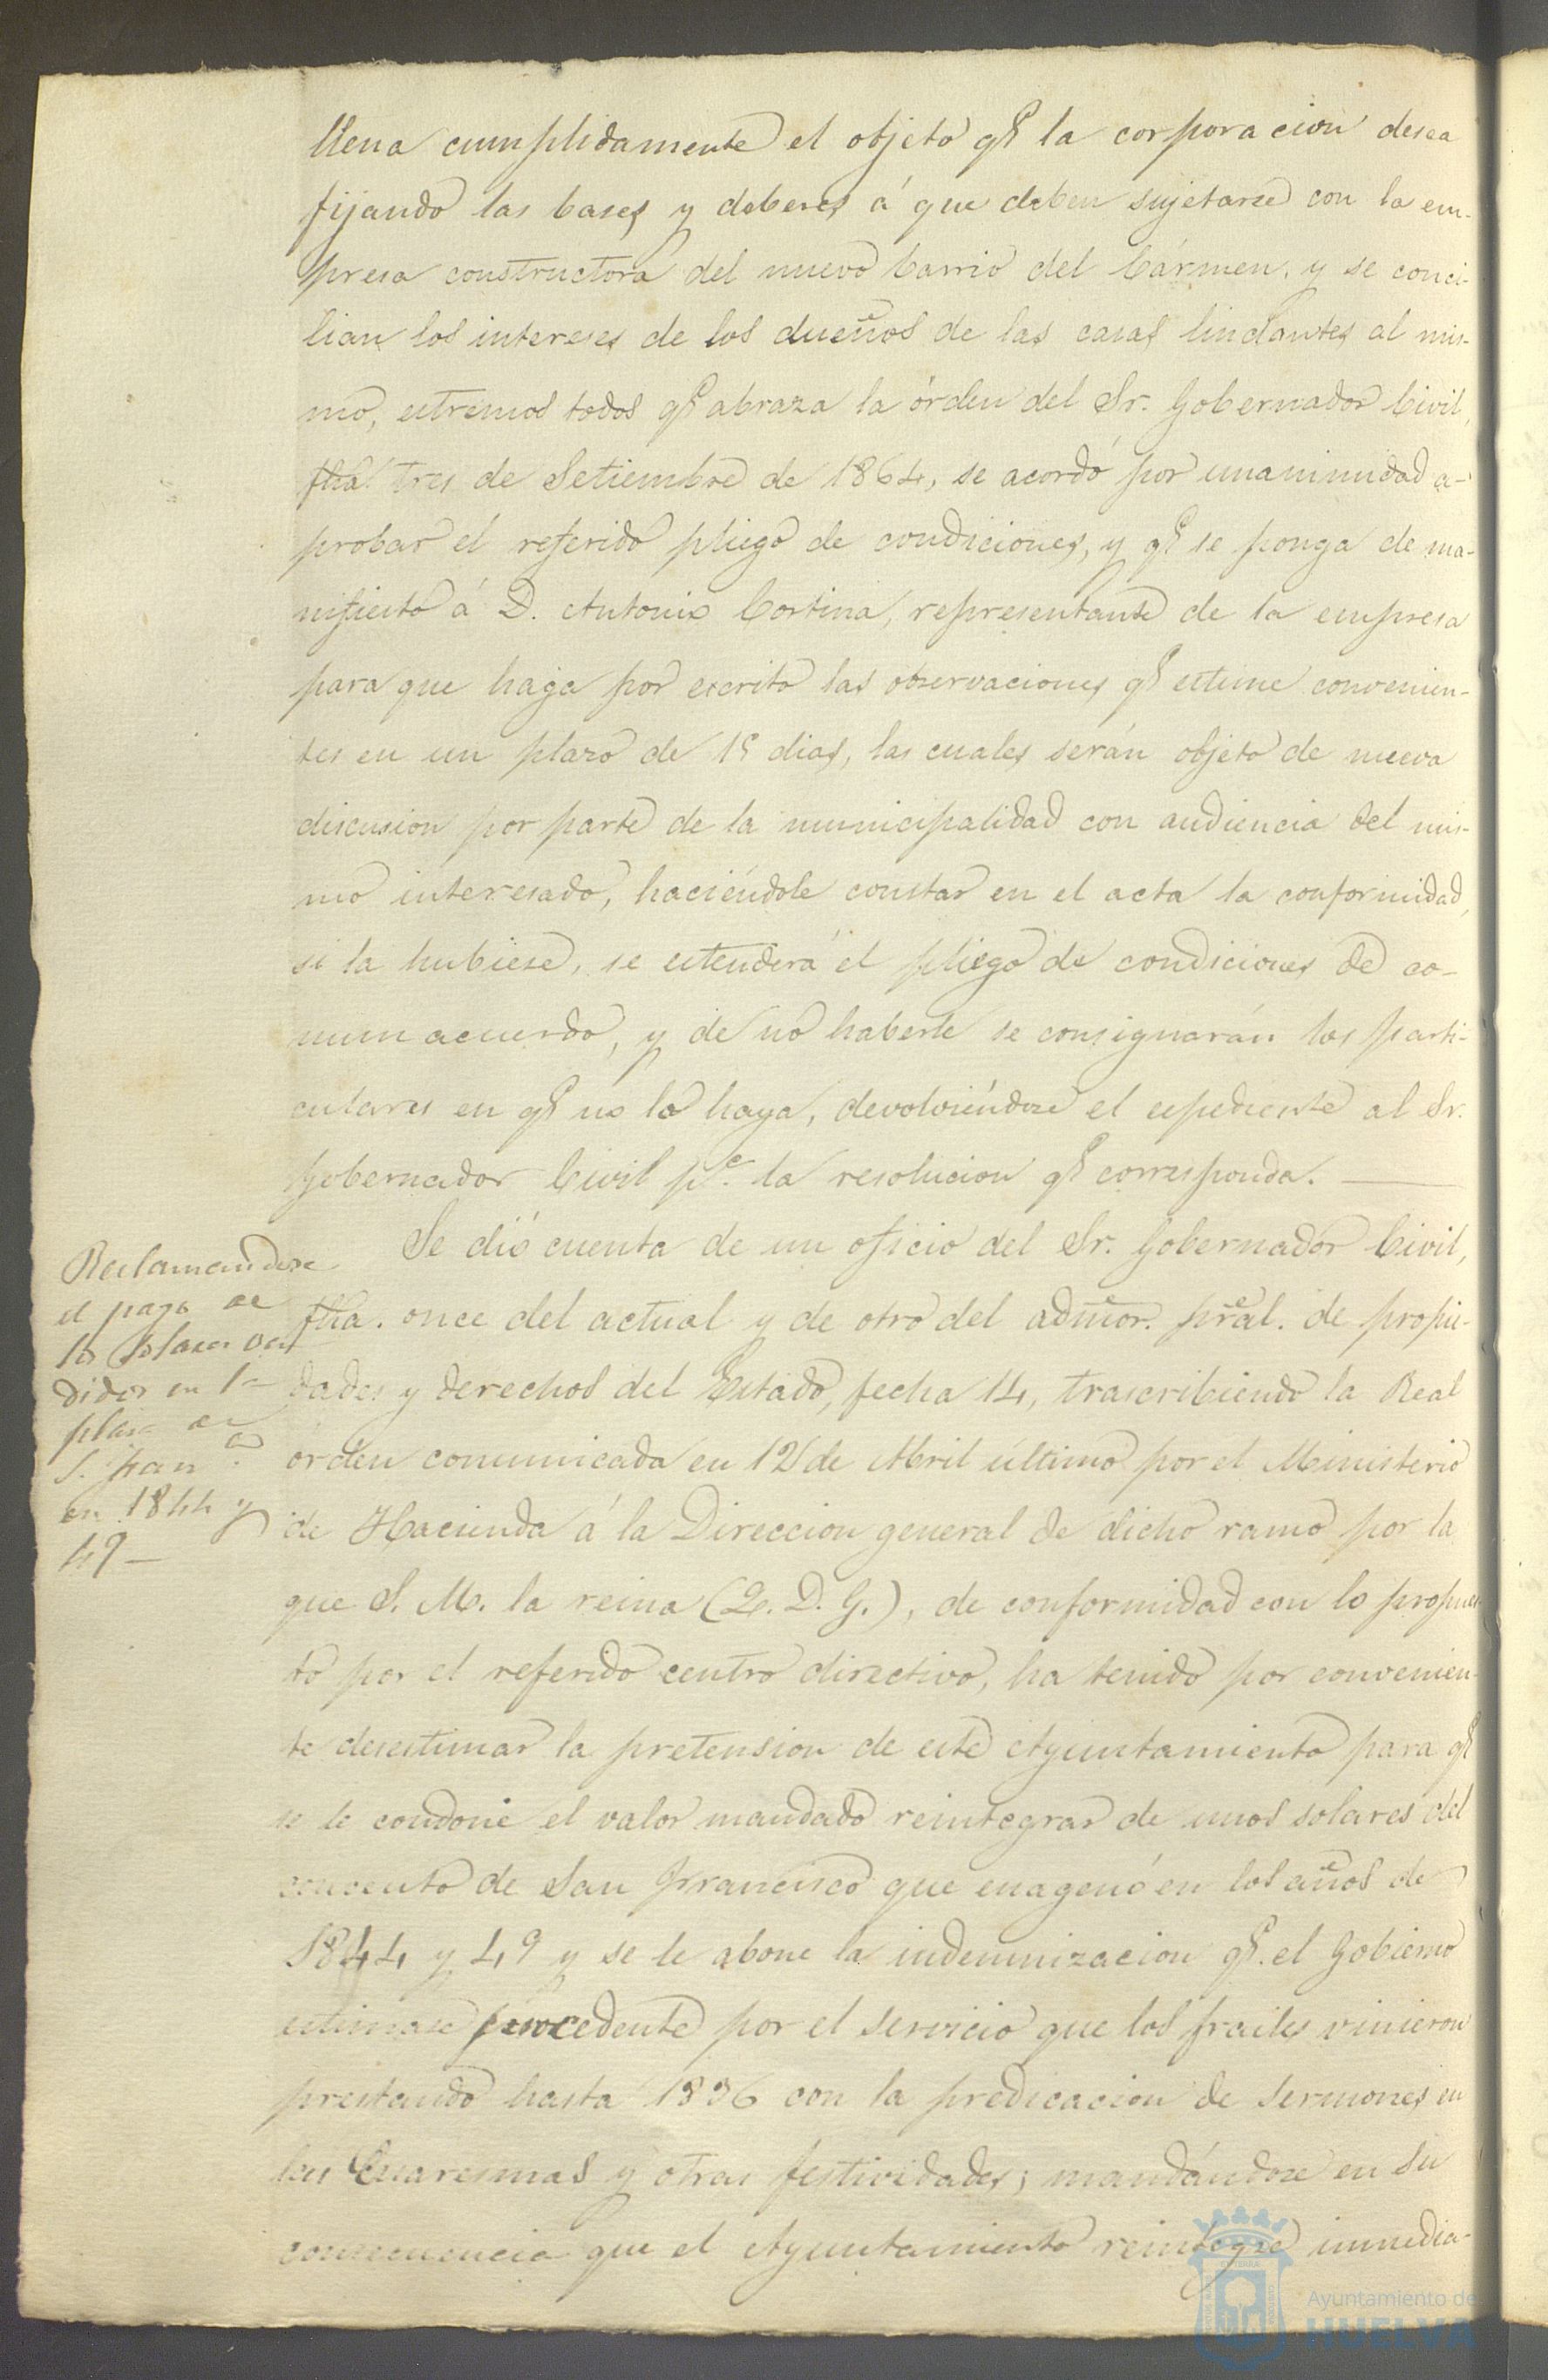 llena cumplidamente el objeto q.e la corporacion desea
fijando las bases y deberes á que deben sujetarse con la em-
presa constructora del nuevo barrio del Cármen, y se conci-
lian los intereses de los dueños de las casas lindantes al mis-
mo, estremos todos q.e abraza la órden del Sr. Gobernador Civil,
fha. tres de Setiembre de 1864, se acordó por unanimidad a-
probar el referido pliego de condiciones, y q.e se ponga de ma-
nifiesto á D. Antonio Cortina, representante de la empresa
para que haga por escrito las observaciones q.e estime convenien-
tes en un plazo de 15 dias, las cuales serán objeto de nueva
discusion por parte de la municipalidad con audiencia del mis-
mo interesado, haciéndole constar en el acta la conformidad,
si la hubiese, se estenderá el pliego de condiciones de co-
mun acuerdo, y de no haberle se consignarán los parti-
culares en q.e no lo haya, devolviéndose el espediente al Sr.
Gobernador Civil p.a la resolucion q.e corresponda.
Reclamandose
el pago de
los solares ven
didos en la
plaza de
S. Fran.co
en 1844 y
49
Se dió cuenta de un oficio del Sr. Gobernador Civil,
fha. once del actual y de otro del admor. pral. de propie-
dades y derechos del Estado, fecha 14, trascribiendo la Real
órden comunicada en 12 de Abril último por el Ministerio
de Hacienda á la Direccion general de dicho ramo por la
que S. M. la reina (Q. D. G.), de conformidad con lo propues-
to por el referido centro directivo, ha tenido por convenien-
te desestimar la pretension de este Ayuntamiento para q.e
se le condone el valor mandado reintegrar de unos solares del
convento de San Francisco que enagenó en los años de
1844 y 49 y se le abone la indemnizacion q.e el Gobierno
estimase procedente por el servicio que los frailes vinieron
prestando hasta 1836 con la predicacion de sermones en
las Cuaresmas y otras festividades; mandándose en su
consecuencia que el Ayuntamiento reintegre inmedia-
Ayuntamiento de
HUELVA